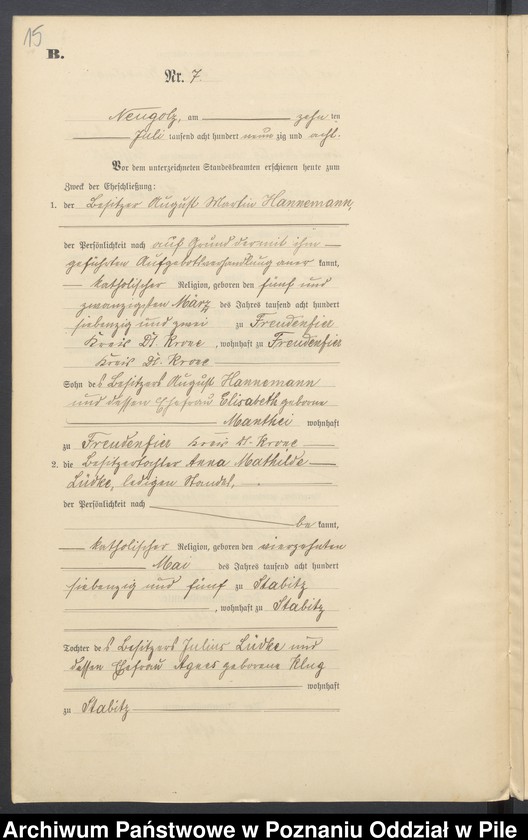 15
B.
Nr. 7.
Neugolz, am zehn ten
Juli tausend acht hundert neun zig und acht.
Vor dem unterzeichneten Standesbeamten erschienen heute zum
Zweck der Eheschließung:
1. der Besitzer August Martin Hannemann,
der Persönlichkeit nach auf Grund der mit ihm
geführten Aufgebotsverhandlung aner kannt,
katholischer Religion, geboren den fünf und
zwanzigsten März des Jahres tausend acht hundert
siebenzig und zwei zu Freudenfier
Kreis Dt. Krone, wohnhaft zu Freudenfier
Kreis Dt. Krone
Sohn des Besitzers August Hannemann
und dessen Ehefrau Elisabeth geborne
Manthei wohnhaft
zu Freudenfier Kreis Dt. Krone
2. die Besitzertochter Anna Mathilde
Lüdke, ledigen Standes,
der Persönlichkeit nach
be kannt,
katholischer Religion, geboren den vierzehnten
Mai des Jahres tausend acht hundert
siebenzig und fünf zu Stabitz
, wohnhaft zu Stabitz
Tochter des Besitzers Julius Lüdke und
dessen Ehefrau Agnes geborene Klug
wohnhaft
zu Stabitz
Archiwum Państwowe w Poznaniu Oddział w Pile